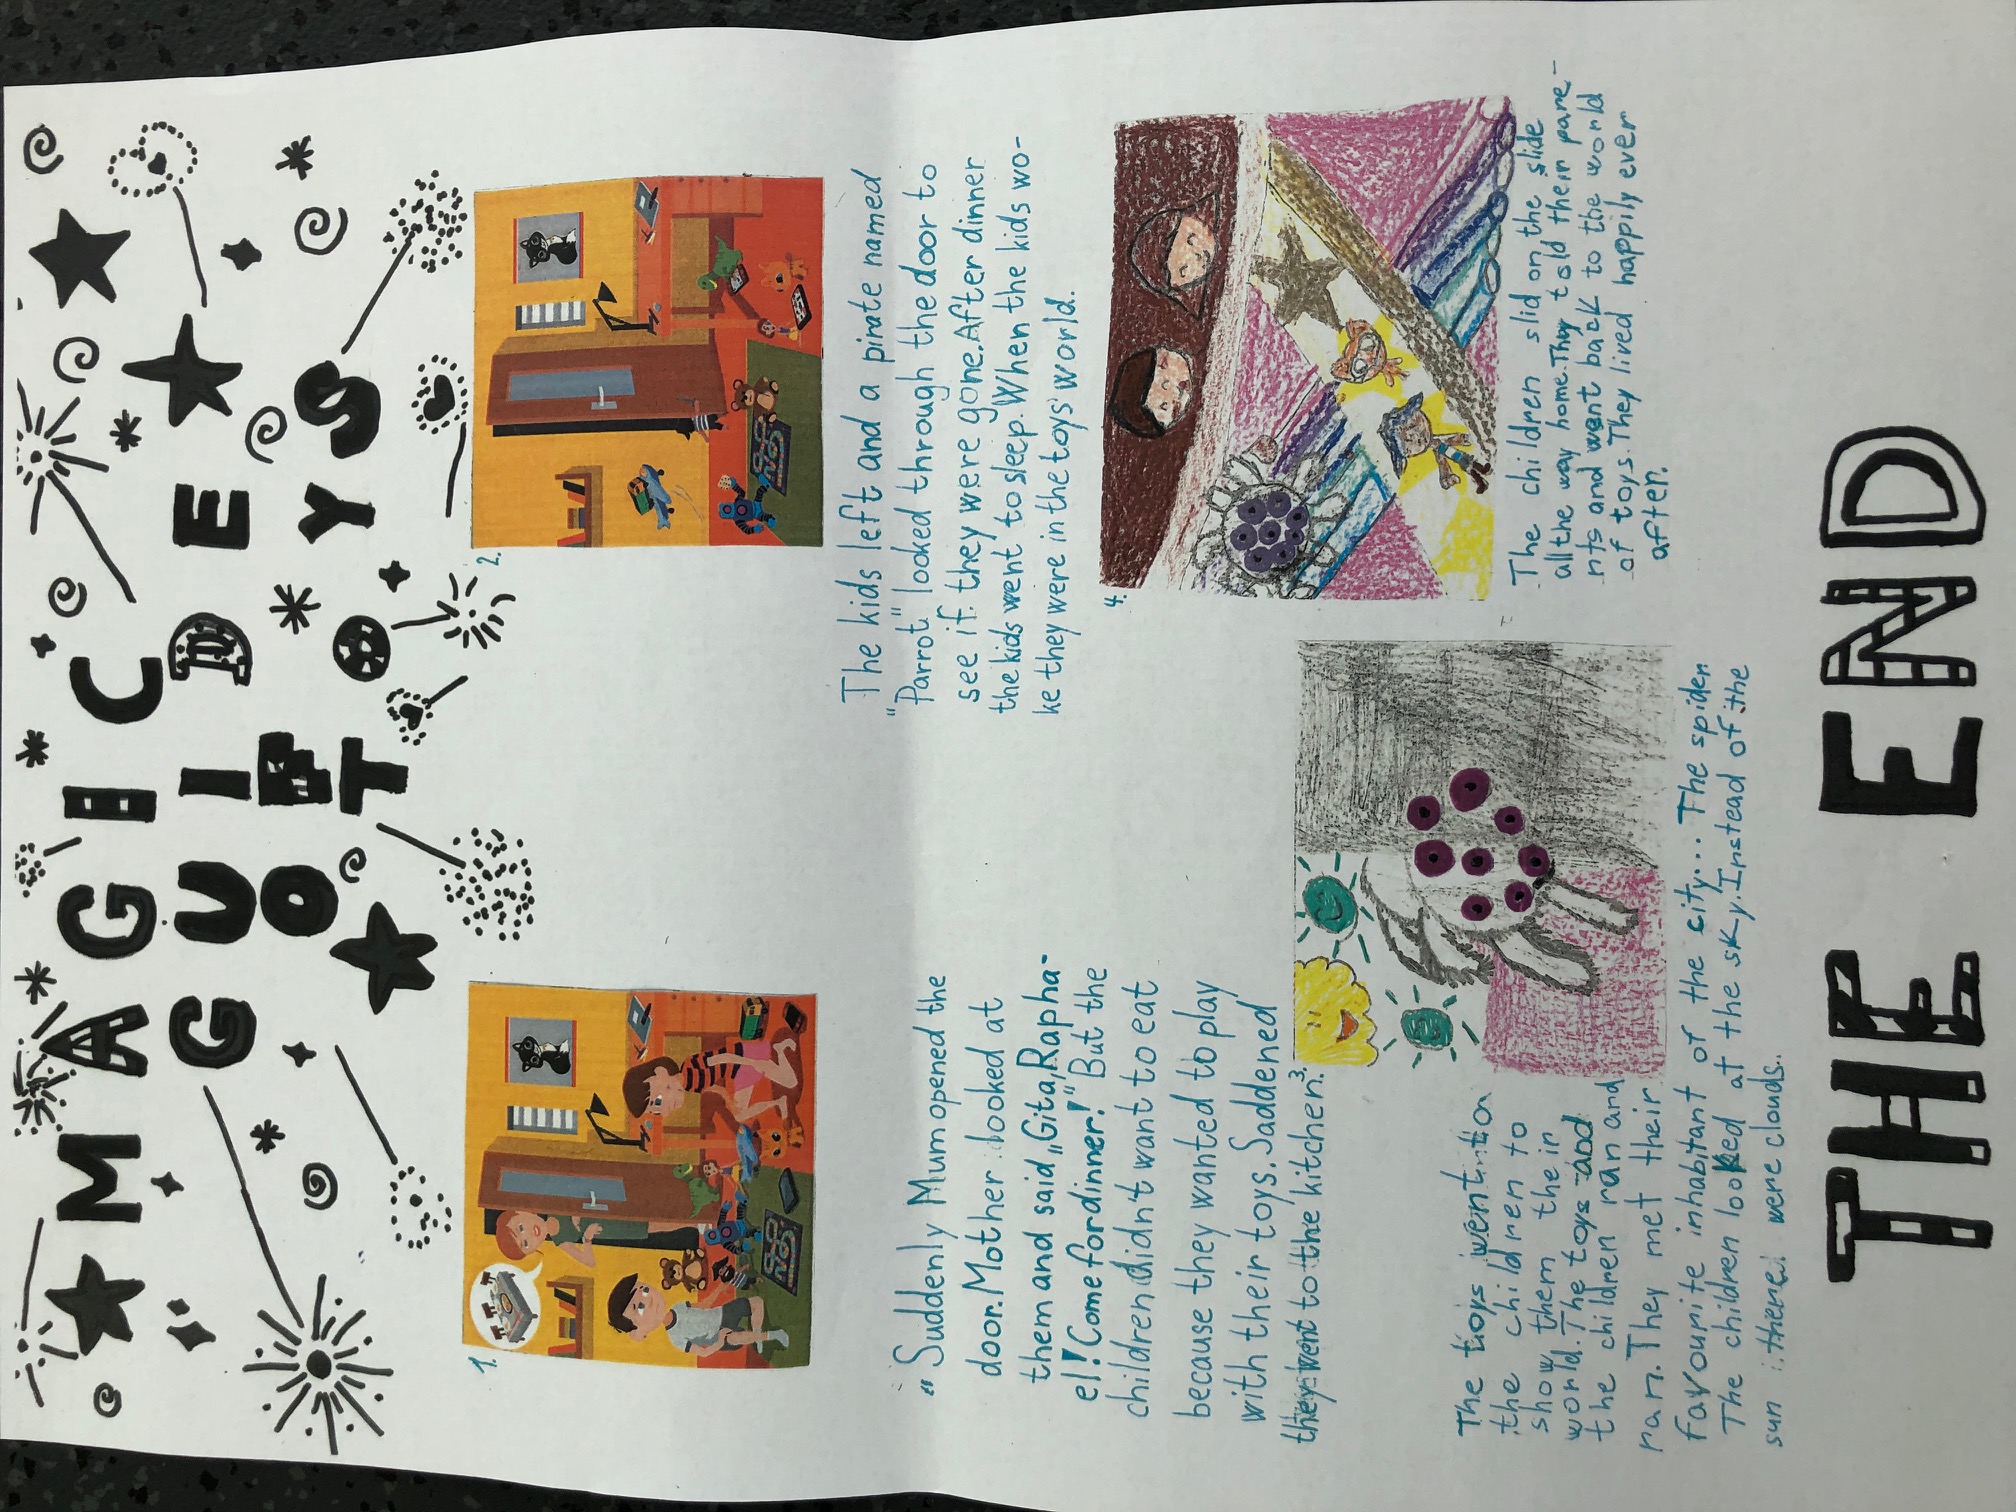 MAGIC
GUIDE
OF
TOYS
1.
„Suddenly Mum opened the
door. Mother looked at
them and said „Gita, Rapha-
el! Come for dinner!" But the
children didn't want to eat
because they wanted to play
with their toys. Saddened
they went to the kitchen.
2.
The kids left and a pirate named
"Parrot" looked through the door to
see if they were gone. After dinner
the kids went to sleep. When the kids wo-
ke they were in the toys' world.
3.
The toys went to
the children to
show them their
world. The toys and
the children ran and
ran. They met their
favourite inhabitant of the city... The spider.
The children looked at the sky. Instead of the
sun there were clouds.
4.
The children slid on the slide
all the way home. They told their pare-
nts and went back to the world
of toys. They lived happily ever
after.
THE END